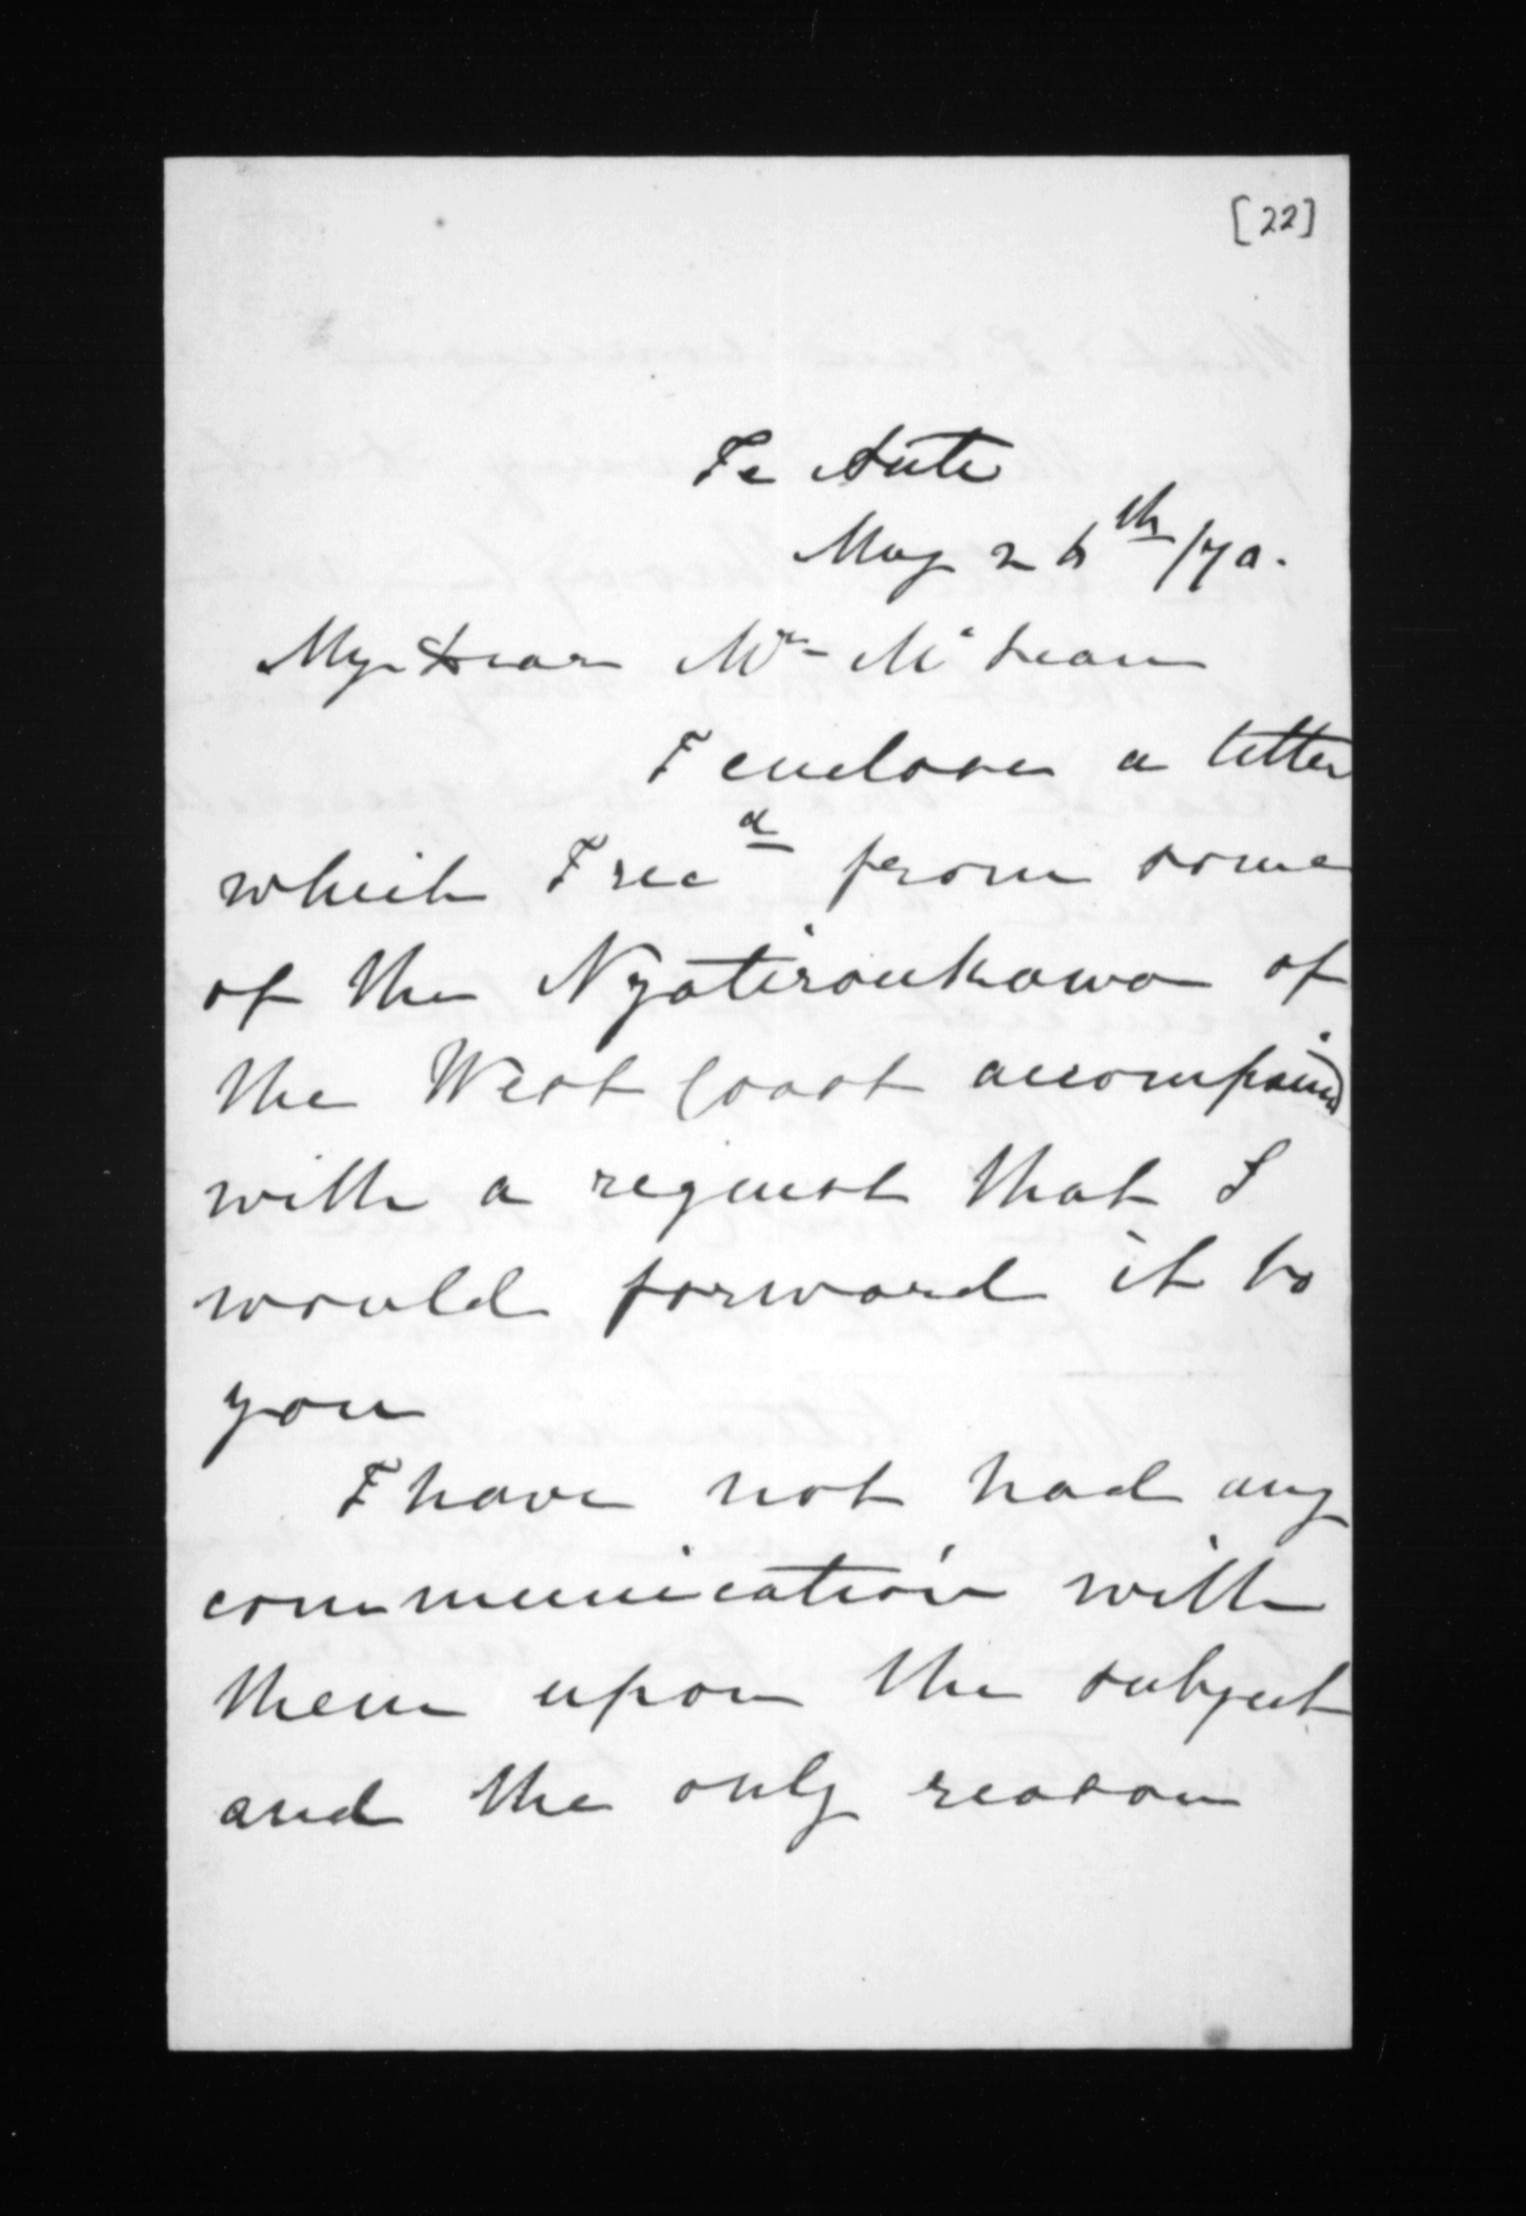 [22]
Te Aute
May 26th/70.
My Dear Mr McLean
I enclose a letter
which I recd from some
of the Ngatiraukawa of
the West Coast accompanied
with a request that I
would forward it to
you
I have not had any
communication with
them upon the subject
and the only reason